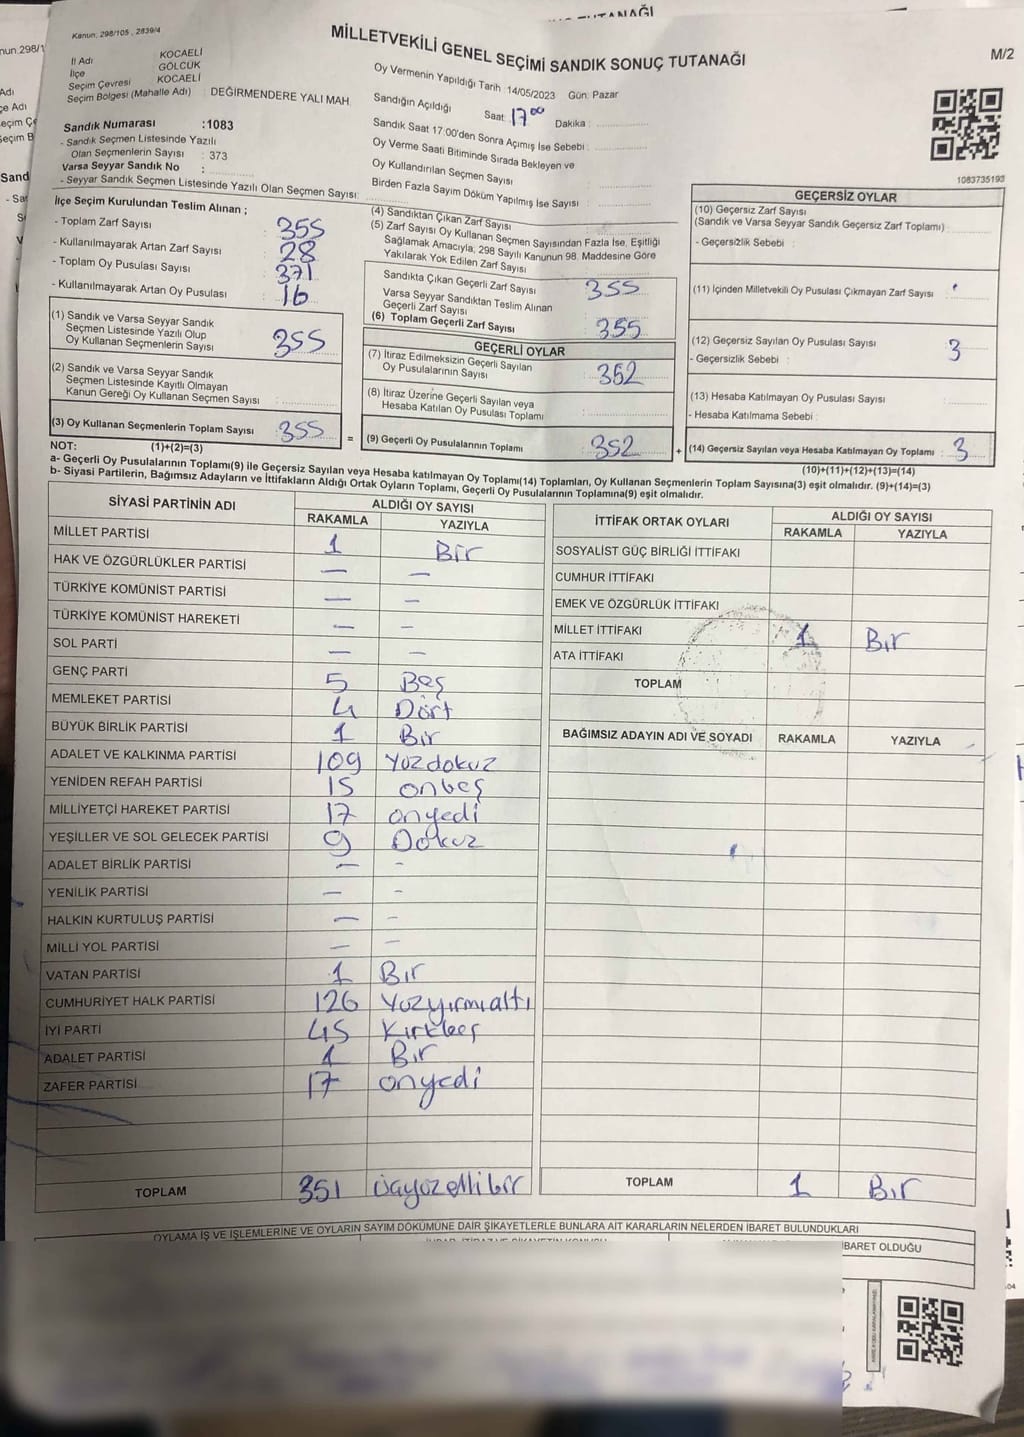 Kanun, 298/105 , 2839/4
MİLLETVEKİLİ GENEL SEÇİMİ SANDIK SONUÇ TUTANAĞI
M/2
İl Adı KOCAELİ
İlçe GÖLCÜK
Seçim Çevresi KOCAELİ
Seçim Bölgesi (Mahalle Adı) : DEĞİRMENDERE YALI MAH.
Sandık Numarası :1083
- Sandık Seçmen Listesinde Yazılı
Olan Seçmenlerin Sayısı : 373
Varsa Seyyar Sandık No :
- Seyyar Sandık Seçmen Listesinde Yazılı Olan Seçmen Sayısı:
Oy Vermenin Yapıldığı Tarih 14/05/2023 Gün: Pazar
Sandığın Açıldığı Saat: 17 00 Dakika :
Sandık Saat 17:00'den Sonra Açımış İse Sebebi :
Oy Verme Saati Bitiminde Sırada Bekleyen ve
Oy Kullandırılan Seçmen Sayısı :
Birden Fazla Sayım Döküm Yapılmış İse Sayısı :
1083735193
İlçe Seçim Kurulundan Teslim Alınan ;
- Toplam Zarf Sayısı : 355
- Kullanılmayarak Artan Zarf Sayısı : 28
- Toplam Oy Pusulası Sayısı : 371
- Kullanılmayarak Artan Oy Pusulası : 16
(1) Sandık ve Varsa Seyyar Sandık
Seçmen Listesinde Yazılı Olup
Oy Kullanan Seçmenlerin Sayısı : 355
(2) Sandık ve Varsa Seyyar Sandık
Seçmen Listesinde Kayıtlı Olmayan
Kanun Gereği Oy Kullanan Seçmen Sayısı :
(3) Oy Kullanan Seçmenlerin Toplam Sayısı : 355 =
(4) Sandıktan Çıkan Zarf Sayısı :
(5) Zarf Sayısı Oy Kullanan Seçmen Sayısından Fazla İse, Eşitliği
Sağlamak Amacıyla; 298 Sayılı Kanunun 98. Maddesine Göre
Yakılarak Yok Edilen Zarf Sayısı :
Sandıkta Çıkan Geçerli Zarf Sayısı : 355
Varsa Seyyar Sandıktan Teslim Alınan
Geçerli Zarf Sayısı :
(6) Toplam Geçerli Zarf Sayısı : 355
GEÇERLİ OYLAR
(7) İtiraz Edilmeksizin Geçerli Sayılan
Oy Pusulalarının Sayısı : 352
(8) İtiraz Üzerine Geçerli Sayılan veya
Hesaba Katılan Oy Pusulası Toplamı :
(9) Geçerli Oy Pusulalarının Toplamı : 352 +
GEÇERSİZ OYLAR
(10) Geçersiz Zarf Sayısı
(Sandık ve Varsa Seyyar Sandık Geçersiz Zarf Toplamı) :
- Geçersizlik Sebebi :
(11) İçinden Milletvekili Oy Pusulası Çıkmayan Zarf Sayısı :
(12) Geçersiz Sayılan Oy Pusulası Sayısı : 3
- Geçersizlik Sebebi :
(13) Hesaba Katılmayan Oy Pusulası Sayısı :
- Hesaba Katılmama Sebebi :
(14) Geçersiz Sayılan veya Hesaba Katılmayan Oy Toplamı : 3
NOT: (1)+(2)=(3)
(10)+(11)+(12)+(13)=(14)
a- Geçerli Oy Pusulalarının Toplamı(9) ile Geçersiz Sayılan veya Hesaba katılmayan Oy Toplamı(14) Toplamları, Oy Kullanan Seçmenlerin Toplam Sayısına(3) eşit olmalıdır. (9)+(14)=(3)
b- Siyasi Partilerin, Bağımsız Adayların ve İttifakların Aldığı Ortak Oyların Toplamı, Geçerli Oy Pusulalarının Toplamına(9) eşit olmalıdır.
SİYASİ PARTİNİN ADI ALDIĞI OY SAYISI
RAKAMLA YAZIYLA
MİLLET PARTİSİ 1 Bir
HAK VE ÖZGÜRLÜKLER PARTİSİ — —
TÜRKİYE KOMÜNİST PARTİSİ — —
TÜRKİYE KOMÜNİST HAREKETİ — —
SOL PARTİ — —
GENÇ PARTİ 5 Beş
MEMLEKET PARTİSİ 4 Dört
BÜYÜK BİRLİK PARTİSİ 1 Bir
ADALET VE KALKINMA PARTİSİ 109 Yüzdokuz
YENİDEN REFAH PARTİSİ 15 onbeş
MİLLİYETÇİ HAREKET PARTİSİ 17 onyedi
YEŞİLLER VE SOL GELECEK PARTİSİ 9 Dokuz
ADALET BİRLİK PARTİSİ — -
YENİLİK PARTİSİ — -
HALKIN KURTULUŞ PARTİSİ — -
MİLLİ YOL PARTİSİ — —
VATAN PARTİSİ 1 Bir
CUMHURİYET HALK PARTİSİ 126 Yüzyirmialtı
İYİ PARTİ 45 Kırkbeş
ADALET PARTİSİ 1 Bir
ZAFER PARTİSİ 17 onyedi
TOPLAM 351 üçyüzellibir
İTTİFAK ORTAK OYLARI ALDIĞI OY SAYISI
RAKAMLA YAZIYLA
SOSYALİST GÜÇ BİRLİĞİ İTTİFAKI
CUMHUR İTTİFAKI
EMEK VE ÖZGÜRLÜK İTTİFAKI
MİLLET İTTİFAKI 1 Bir
ATA İTTİFAKI
TOPLAM
BAĞIMSIZ ADAYIN ADI VE SOYADI RAKAMLA YAZIYLA
TOPLAM 1 Bir
OYLAMA İŞ VE İŞLEMLERİNE VE OYLARIN SAYIM DÖKÜMÜNE DAİR ŞİKAYETLERLE BUNLARA AİT KARARLARIN NELERDEN İBARET BULUNDUKLARI
İBARET OLDUĞU